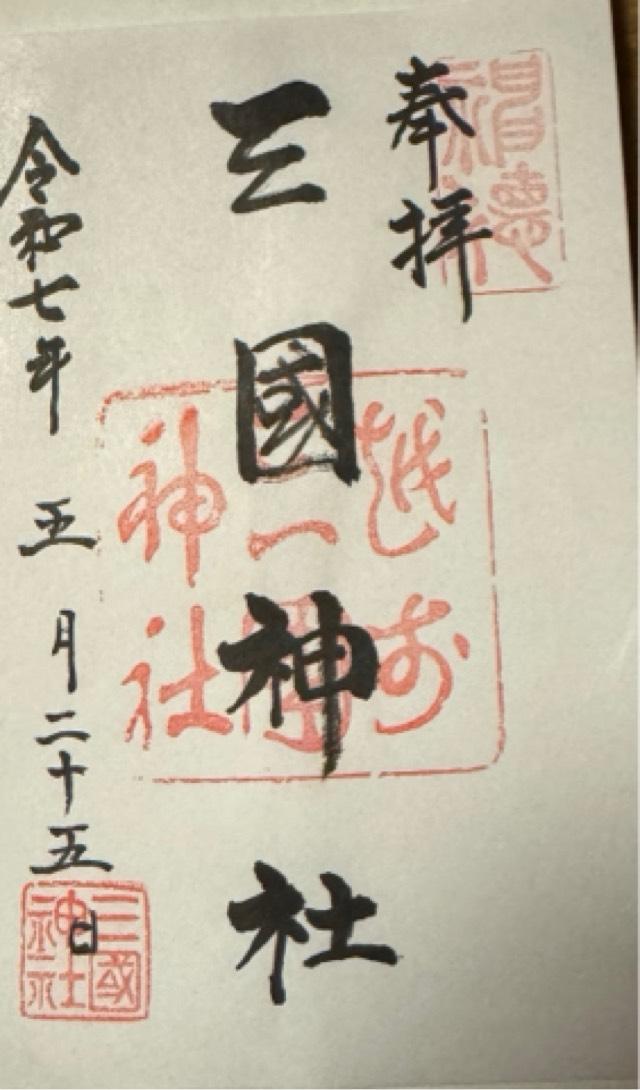 奉拝
三國神社
越前
三國
神社
令和七年 五月二十五日
三國
神社